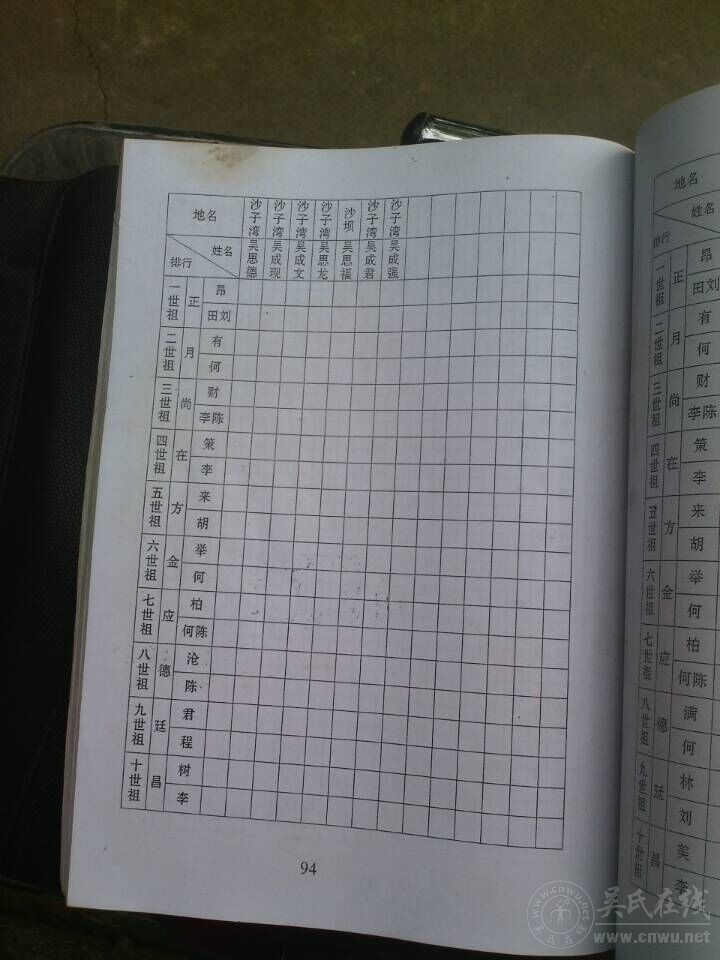 地名 沙子湾 沙子湾 沙子湾 沙子湾 沙坝 沙子湾 沙子湾
姓名 吴思德 吴成现 吴成文 吴思龙 吴思福 吴成君 吴成强
排行
一世祖 正 昂
田刘
二世祖 月 有
何
三世祖 尚 财
李陈
四世祖 在 策
李
五世祖 方 来
胡
六世祖 金 举
何
七世祖 应 柏
何陈
八世祖 德 沧
陈
九世祖 廷 君
程
十世祖 昌 树
李
94
地名
姓名
排行
一世祖 正 昂
田刘
二世祖 月 有
何
三世祖 尚 财
李陈
四世祖 在 策
李
五世祖 方 来
胡
六世祖 金 举
何
七世祖 应 柏
何陈
八世祖 德 满
何
九世祖 廷 林
刘
十世祖 昌 美
李
吴氏在线
www.cnwu.net